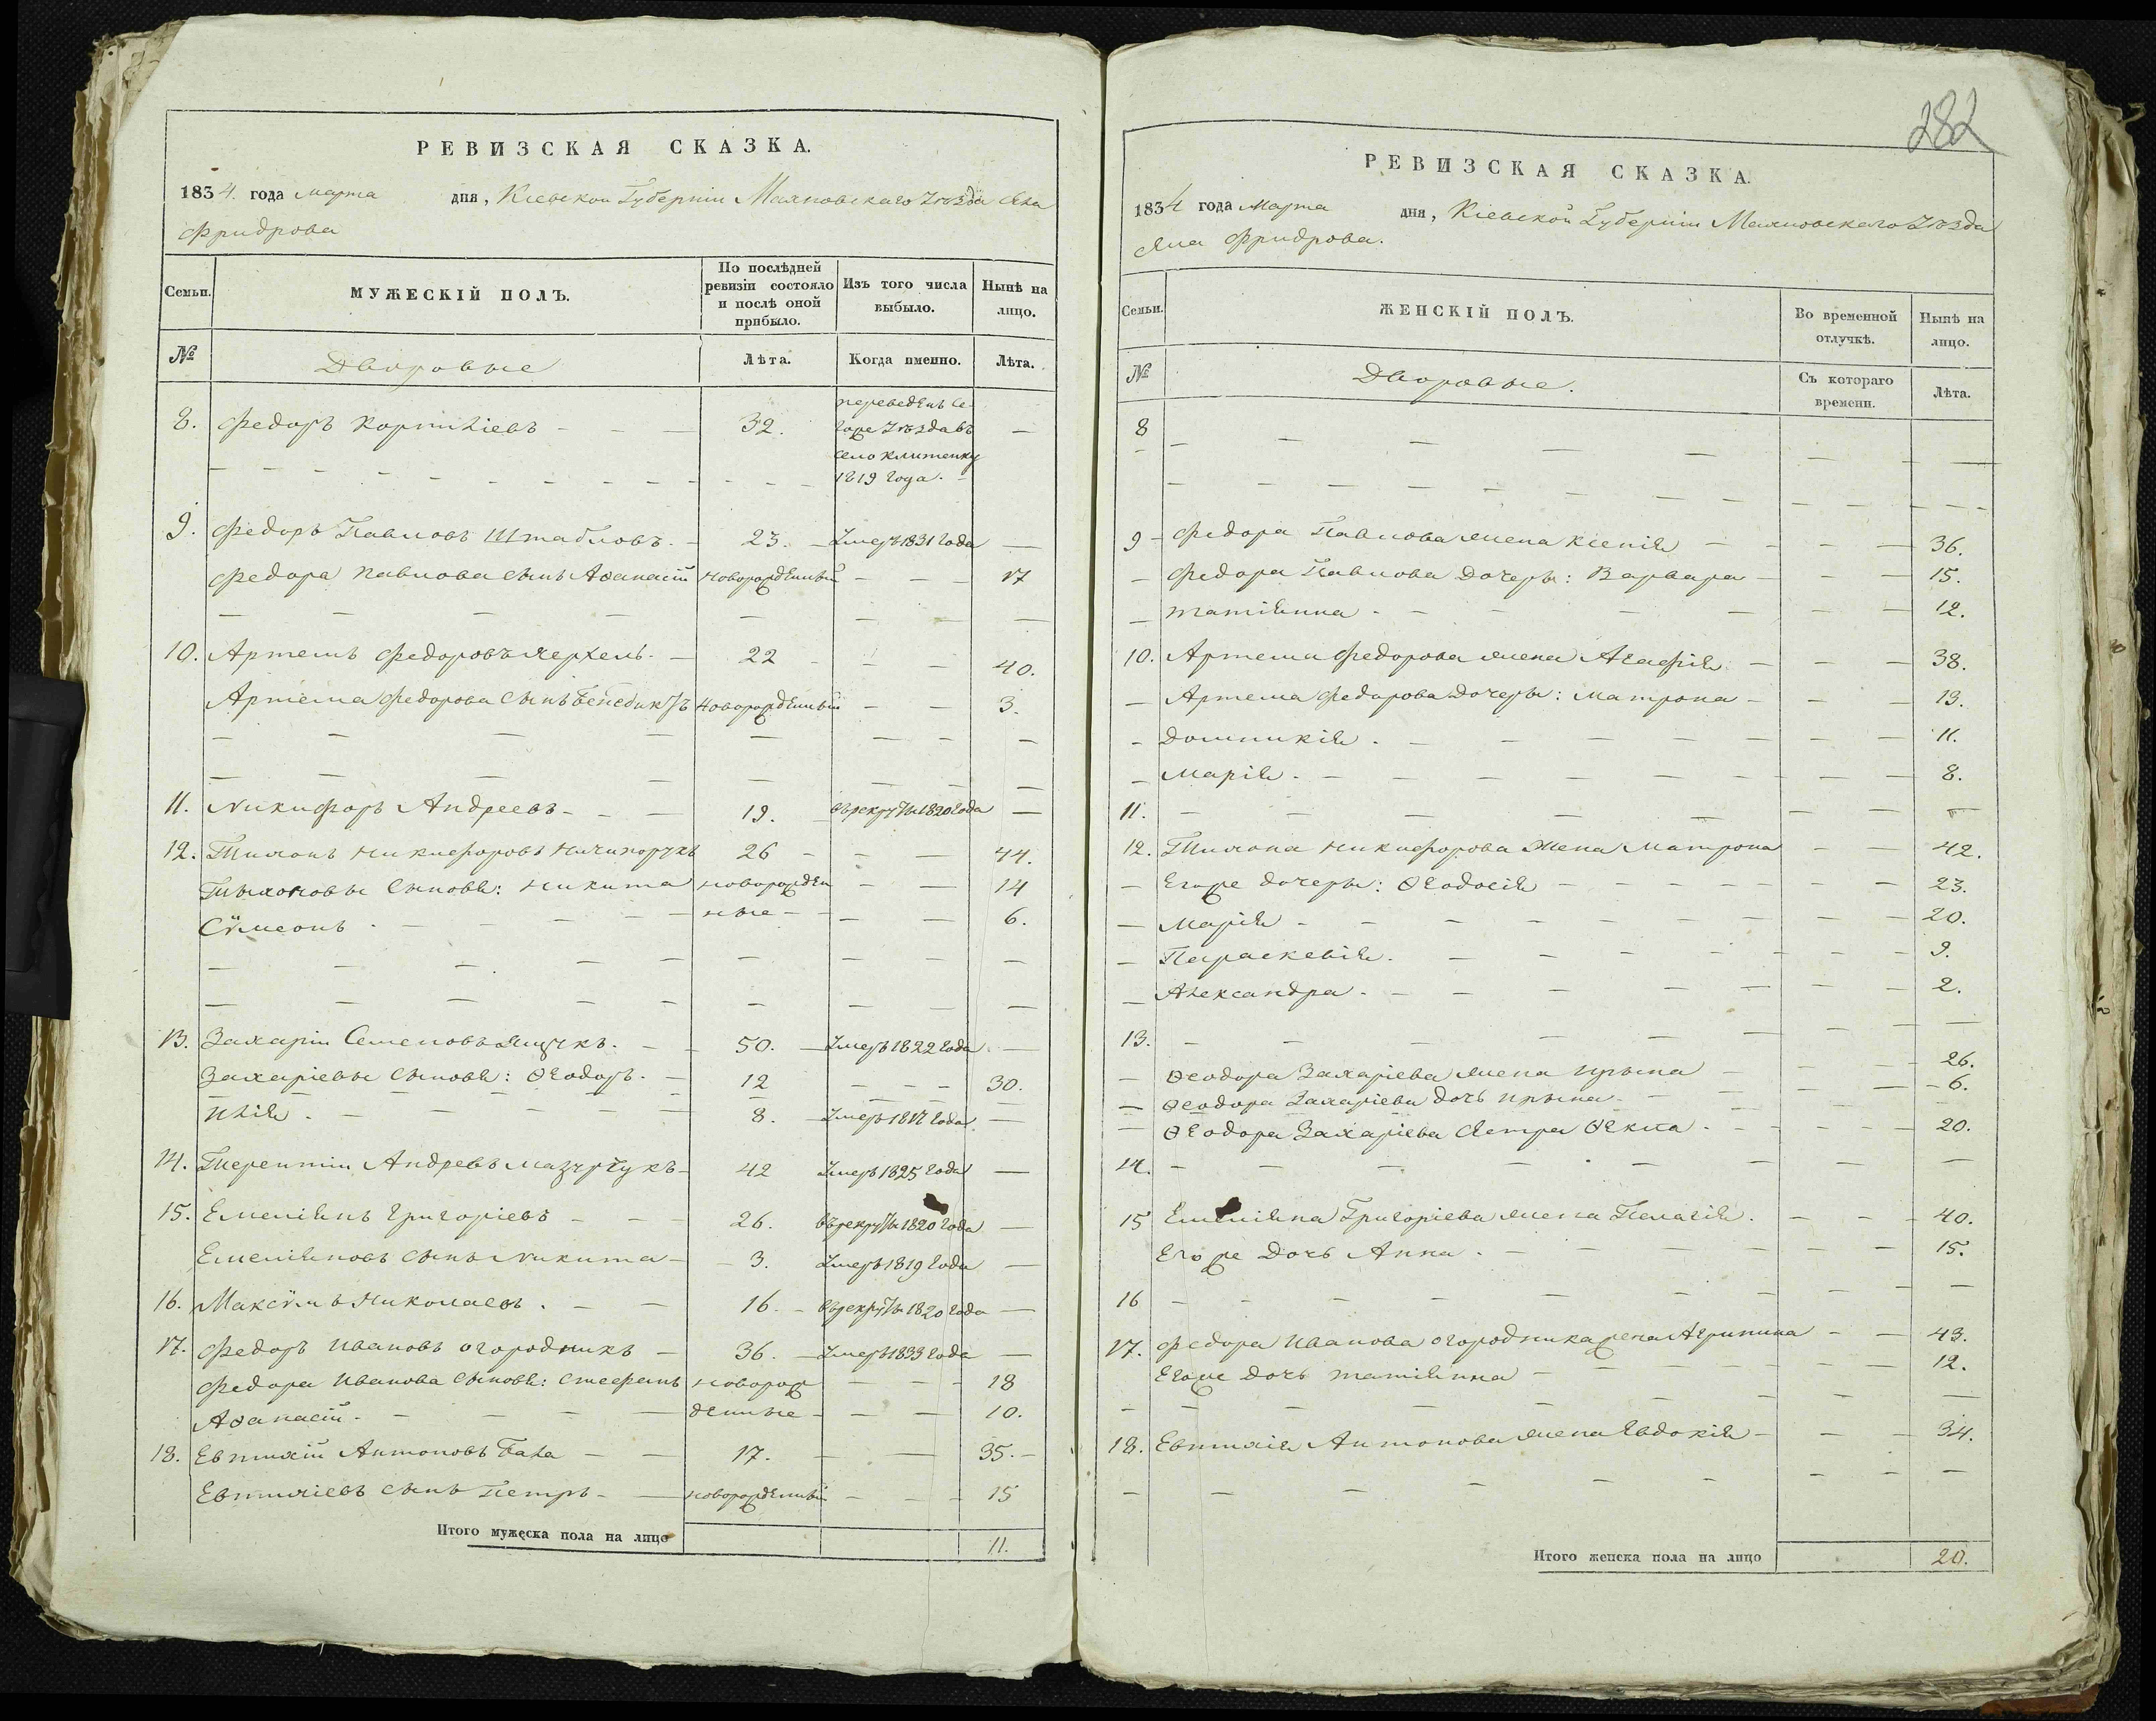 РЕВИЗСКАЯ СКАЗКА.
1834. года марта дня, Кіевской Губерніи Махновскаго Уѣзда Села
Фридрова
Семьи. МУЖЕСКІЙ ПОЛЪ. По послѣдней ревизіи состояло и послѣ оной прибыло. Изъ того числа выбыло. Нынѣ на лицо.
№ Дворовые Лѣта. Когда именно. Лѣта.
8. Федоръ Корнѣіевъ - - — 32. переведенъ се- —
гоже Уѣзда въ
село
1819 года.
9. Федоръ Павловъ Штабловъ. - 23. - Умеръ 1831 года —
Федора Павлова сынъ Аѳанасій новорожденный - - - 17
10. Артемъ Федоровъ - 22 - - - 40.
Артема Федорова сынъ Бенедиктъ новорожденный - - 3.
11. Никифоръ Андреевъ - - — 19. - въ рекруты 1820 года —
12. Тихонъ Никифоровъ Ничипорукъ 26 - - — 44.
Тихоновы сыновя: Никита новорожден - — 14
Сѵмеонъ. — - - - ные - - — 6.
13. Захарій Семеновъ - 50. - Умеръ 1822 года —
Захаріевы сыновя: Ѳеодоръ. - 12 - - - 30.
Илія. — - - - 8. - Умеръ 1817 года. —
14. Терентій Андреевъ Мазурчукъ - 42 Умеръ 1825 года —
15. Емеліянъ Григоріевъ - - - 26. въ рекруты 1820 года —
Емеліяновъ сынъ Никита - 3. Умеръ 1819 года —
16. Максѵмъ Николаевъ. - — 16. - въ рекруты 1820 года —
17. Федоръ Ивановъ Огородникъ — 36. - Умеръ 1833 года —
Федора Иванова сыновя: Стефанъ новорож - - - 18
Аѳанасій. - — - — денные - - — 10.
18. Евтихій Антоновъ Баха - — 17. - — 35. -
Евтихіевъ сынъ Петръ - — новорожденный - - - 15
Итого мужеска пола на лицо 11.
282
РЕВИЗСКАЯ СКАЗКА.
1834 года Марта дня, Кіевской Губерніи Махновскаго Уѣзда
Фридрова.
Семьи. ЖЕНСКІЙ ПОЛЪ. Во временной отлучкѣ. Нынѣ на лицо.
№ Дворовые. Съ котораго времени. Лѣта.
8
9 - Федора Павлова жена Ксенія - - - — 36.
- Федора Павлова дочеры: Варвара - - — 15.
- Татіянна. - - - — — - — 12.
10. Артема Федорова жена Агафія - - - — 38.
- Артема Федорова дочеры: Матрона - - - 13.
- Домникія. - - - - - - — 11.
- Марія. - - - - - - — 8.
11. - - - - - - — —
12. Тихона Никифорова жена Матрона - — 42.
- Егоже дочеры: Ѳеодосія - - - - - - — 23.
- Марія - - - - - - - — 20.
- Параскевія. - - - - - - 9.
- Александра. - - - - - — — 2.
13. - - - - - - — —
- Ѳеодора Захаріева жена Ирына - - - 26.
- Ѳеодора Захаріева дочь Ирына. - - - 6.
- Ѳеодора Захаріева сестра Ѳекла. - - - 20.
14. - - - - - - — —
15 Емеліяна Григоріева жена Пелагія. - - - 40.
Егоже дочь Анна. - - - - - — 15.
16 - - - - - - — —
17. Федора Иванова Огородника жена Агрипина - — 43.
Егоже дочь Татіянна - - - - - 12.
18. Евтихія Антонова жена Евдокія - - - 34.
Итого женска пола на лицо 20.